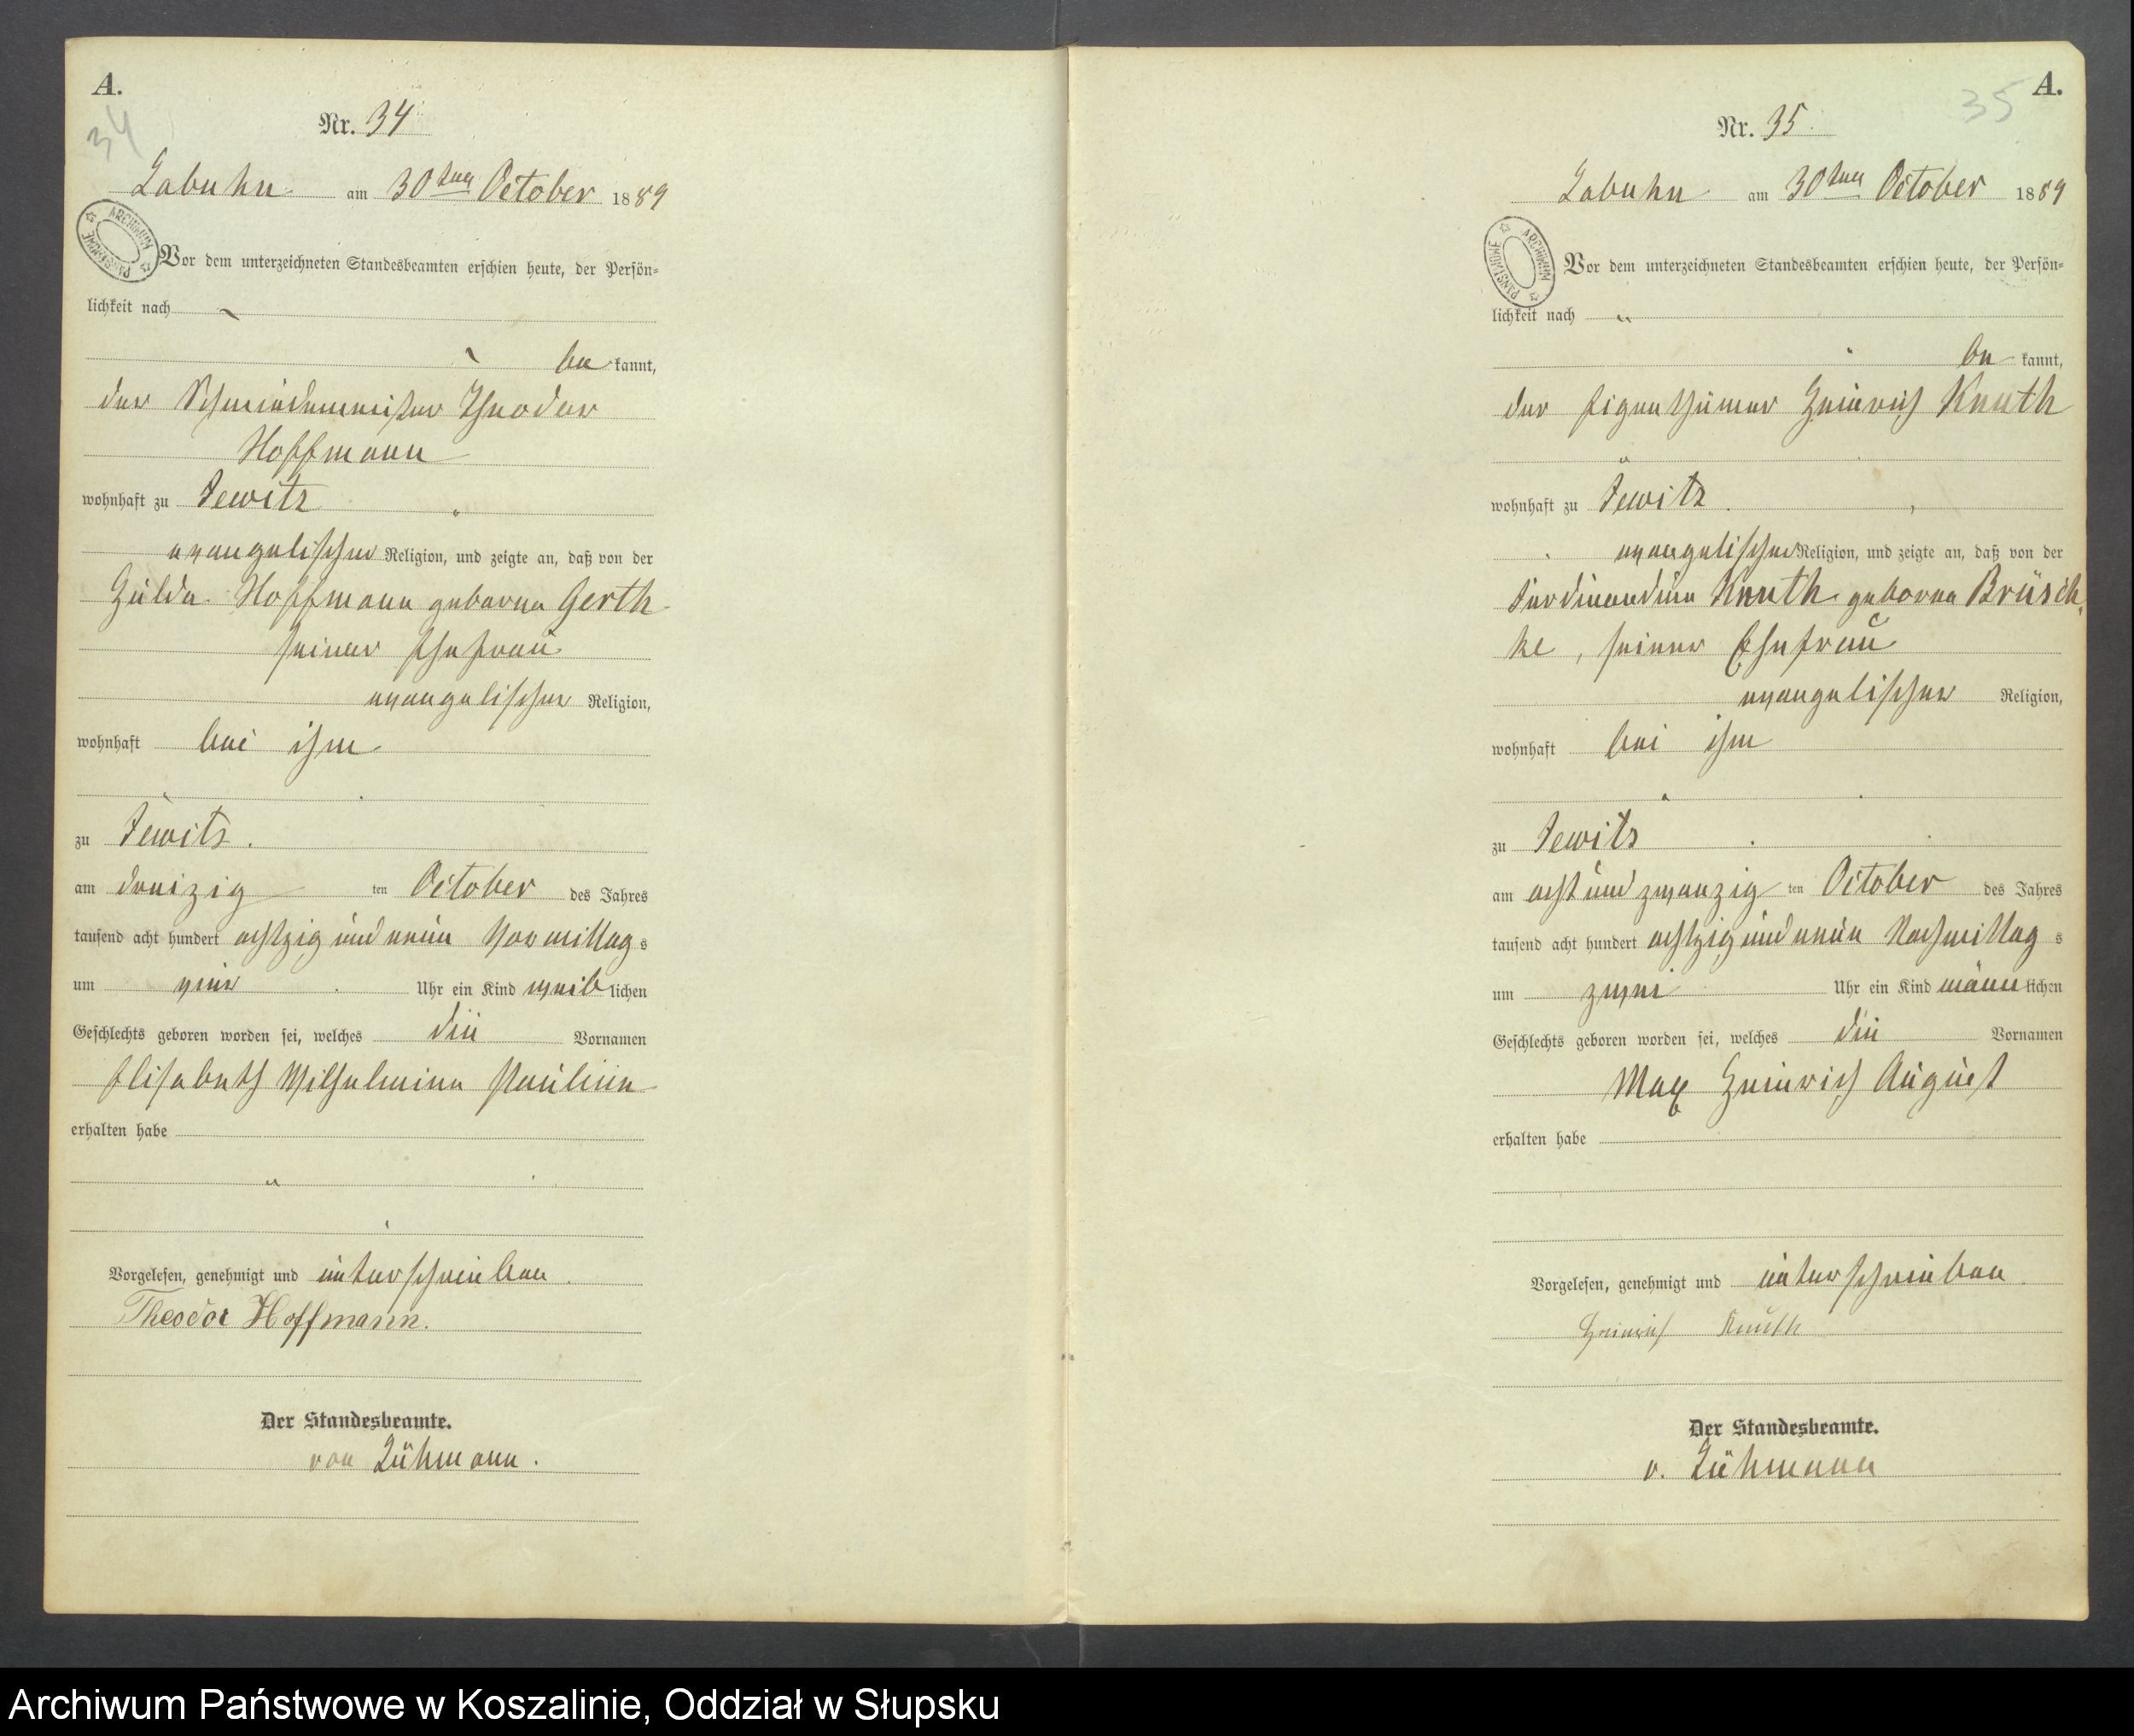 A.
34
Nr. 34
Labuhn am 30ten October 1889
ARCHIWUM PAŃSTWOWE
Vor dem unterzeichneten Standesbeamten erschien heute, der Persön-
lichkeit nach
be kannt,
der Schmiedemeister Theodor
Hoffmann
wohnhaft zu Jewitz
evangelischer Religion, und zeigte an, daß von der
Hulda Hoffmann geborne Gerth
seiner Ehefrau
evangelischer Religion,
wohnhaft bei ihm
zu Jewitz.
am dreizig ten October des Jahres
tausend acht hundert achtzig und neun Vormittag s
um vier Uhr ein Kind weib lichen
Geschlechts geboren worden sei, welches die Vornamen
Elisabeth Wilhelmine Pauline
erhalten habe
Vorgelesen, genehmigt und unterschrieben.
Theodor Hoffmann.
Der Standesbeamte.
von Zühmann.
A.
35
Nr. 35.
Labuhn am 30ten October 1889
ARCHIWUM PAŃSTWOWE
Vor dem unterzeichneten Standesbeamten erschien heute, der Persön-
lichkeit nach
be kannt,
der Eigenthümer Heinrich Knuth
wohnhaft zu Jewitz
evangelischer Religion, und zeigte an, daß von der
Ferdinandine Knuth geborne Brüsch-
ke, seiner Ehefrau
evangelischer Religion,
wohnhaft bei ihm
zu Jewitz
am acht und zwanzig ten October des Jahres
tausend acht hundert achtzig und neun Nachmittag s
um zwei Uhr ein Kind männ lichen
Geschlechts geboren worden sei, welches die Vornamen
Max Heinrich August
erhalten habe
Vorgelesen, genehmigt und unterschrieben.
Heinrich Knuth
Der Standesbeamte.
v. Zühmann
Archiwum Państwowe w Koszalinie, Oddział w Słupsku